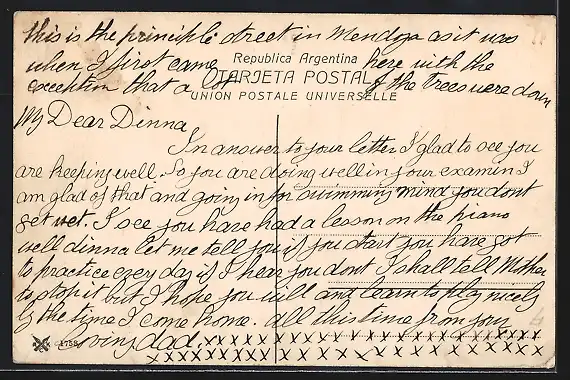 this is the principle street in Mendoza as it was
when I first came Republica Argentina here with the
exception that a lot TARJETA POSTAL of the trees were down
UNION POSTALE UNIVERSELLE
My Dear Dinna
In answer to your letter I glad to see you
are keeping well. So you are doing well in your examin I
am glad of that and going in for swimming mind you dont
get wet. I see you have had a lesson on the piano
well dinna let me tell you if you start you have got
to practice every day if I hear you dont I shall tell Mother
to stop it but I hope you will and learn to play nicely
by the time I come home. all this time from your
loving dad. x x x x x x x x x x x x x x x x x
1758 x x x x x x x x x x x x x x x x x x x x x